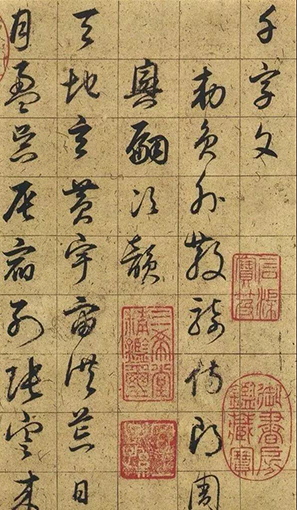 千字文
勅員外散騎侍郎周
興嗣次韻
天地玄黃宇宙洪荒日
月盈昃辰宿列張寒來
石渠寶笈
御書房鑑藏寶
三希堂精鑑璽
宜子孫